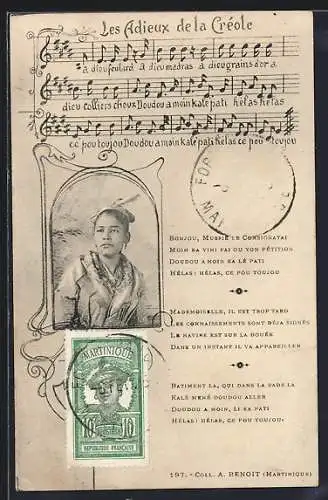 Les Adieux de la Créole
à dieu foulard à dieu madras à dieu grains d'or à
dieu colliers choux Doudou à moin kalé pati hélas hélas
cé pou toujou Doudou à moin kalé pati hélas cé pou toujou
BONJOU, MUSSIÉ LE CONSIGNATAI
MOIN KA VINI FAI OU YON PÉTITION
DOUDOU A MOIN KA LÉ PATI
HÉLAS! HÉLAS, CÉ POU TOUJOU
MADEMOISELLE, IL EST TROP TARD
LES CONNAISSEMENTS SONT DÉJÀ SIGNÉS
LE NAVIRE EST SUR LA BOUÉE
DANS UN INSTANT IL VA APPAREILLER
BATIMENT LA, QUI DANS LA RADE LA
KALÉ MENÉ DOUDOU ALLER
DOUDOU A MOIN, LI KA PATI
HÉLAS! HÉLAS, CÉ POU TOUJOU.
MARTINIQUE
10 10
RÉPUBLIQUE FRANÇAISE
197. - COLL. A. BENOIT (MARTINIQUE)